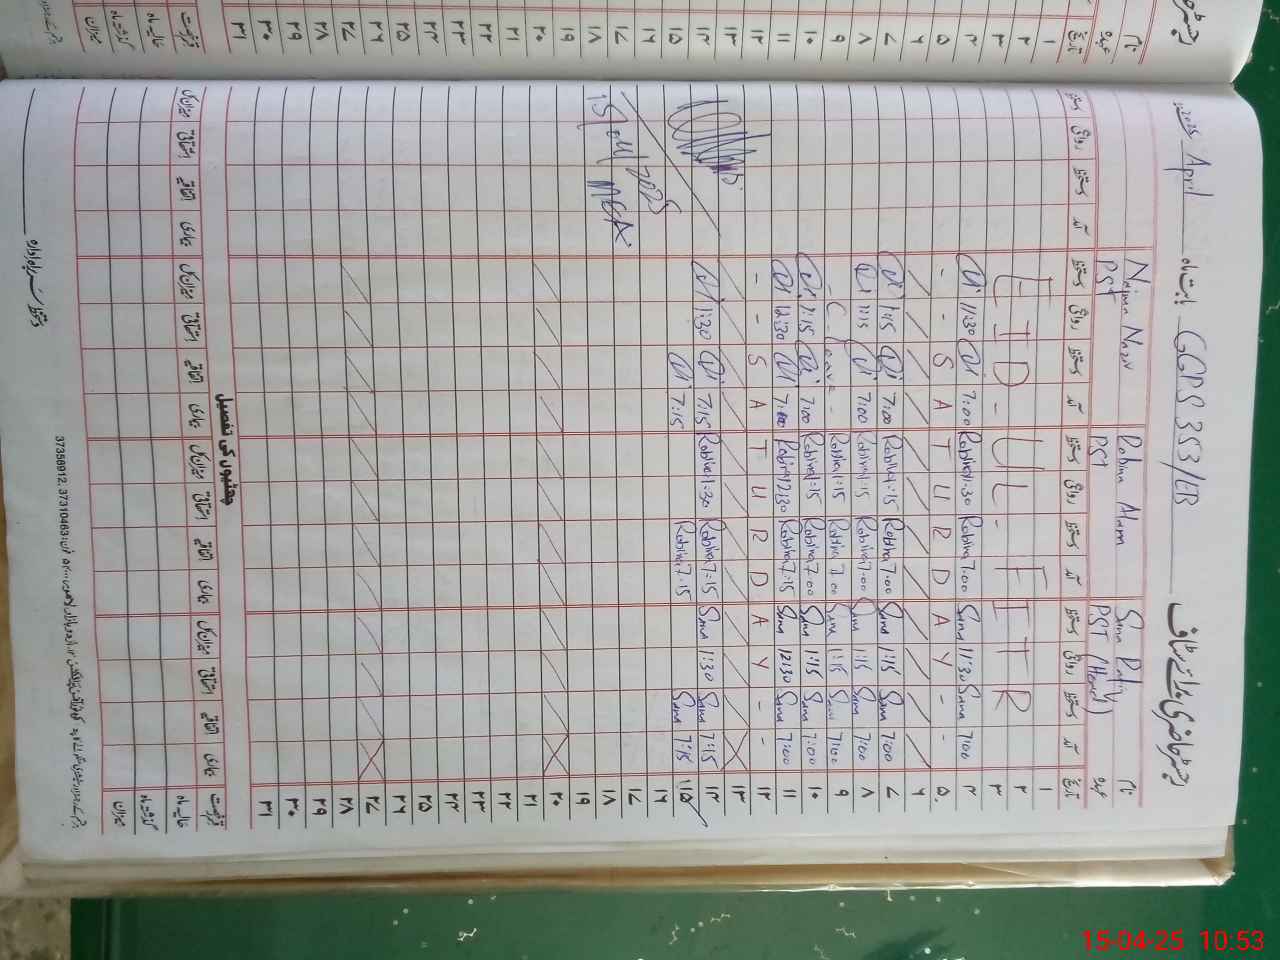 رجسٹر حاضری برائے سٹاف GGPS 353/EB بابت ماہ April 2025
نام Sana Rafiq Robina Alam Najma Nazir
عہدہ PST (Head) PST PST
تاریخ آمد دستخط روانگی دستخط آمد دستخط روانگی دستخط آمد دستخط روانگی دستخط آمد دستخط روانگی دستخط
۱
۲
۳
EID-UL-FITR
۴ 7:00 Sana 11:30 Sana 7:00 Robina 11:30 Robina 7:00 11:30
۵ - - SATURDAY - -
۶
۷ 7:00 Sana 1:15 Sana 7:00 Robina 1:15 Robina 7:00 1:15
۸ 7:00 Sana 1:15 Sana 7:00 Robina 1:15 Robina 7:00 1:15
۹ 7:00 Sana 1:15 Sana 7:00 Robina 1:15 Robina - C - leave -
۱۰ 7:00 Sana 1:15 Sana 7:00 Robina 1:15 Robina 7:00 1:15
۱۱ 7:00 Sana 12:30 Sana 7:15 Robina 12:30 Robina 7:00 12:30
۱۲ - - SATURDAY - -
۱۳
۱۴ 7:15 Sana 1:30 Sana 7:15 Robina 1:30 Robina 7:15 1:30
۱۵ 7:15 Sana 7:15 Robina 7:15
15/04/2025
MEA
۱۶
۱۷
۱۸
۱۹
۲۰
۲۱
۲۲
۲۳
۲۴
۲۵
۲۶
۲۷
۲۸
۲۹
۳۰
۳۱
چھٹیوں کی تفصیل
قسم رخصت بیماری اتفاقیہ استحقاقی میزان کل بیماری اتفاقیہ استحقاقی میزان کل بیماری اتفاقیہ استحقاقی میزان کل بیماری اتفاقیہ استحقاقی میزان کل
حالیہ ماہ
گزشتہ ماہ
میزان
37356912, 37310463
دستخط سربراہ ادارہ
15-04-25 10:53